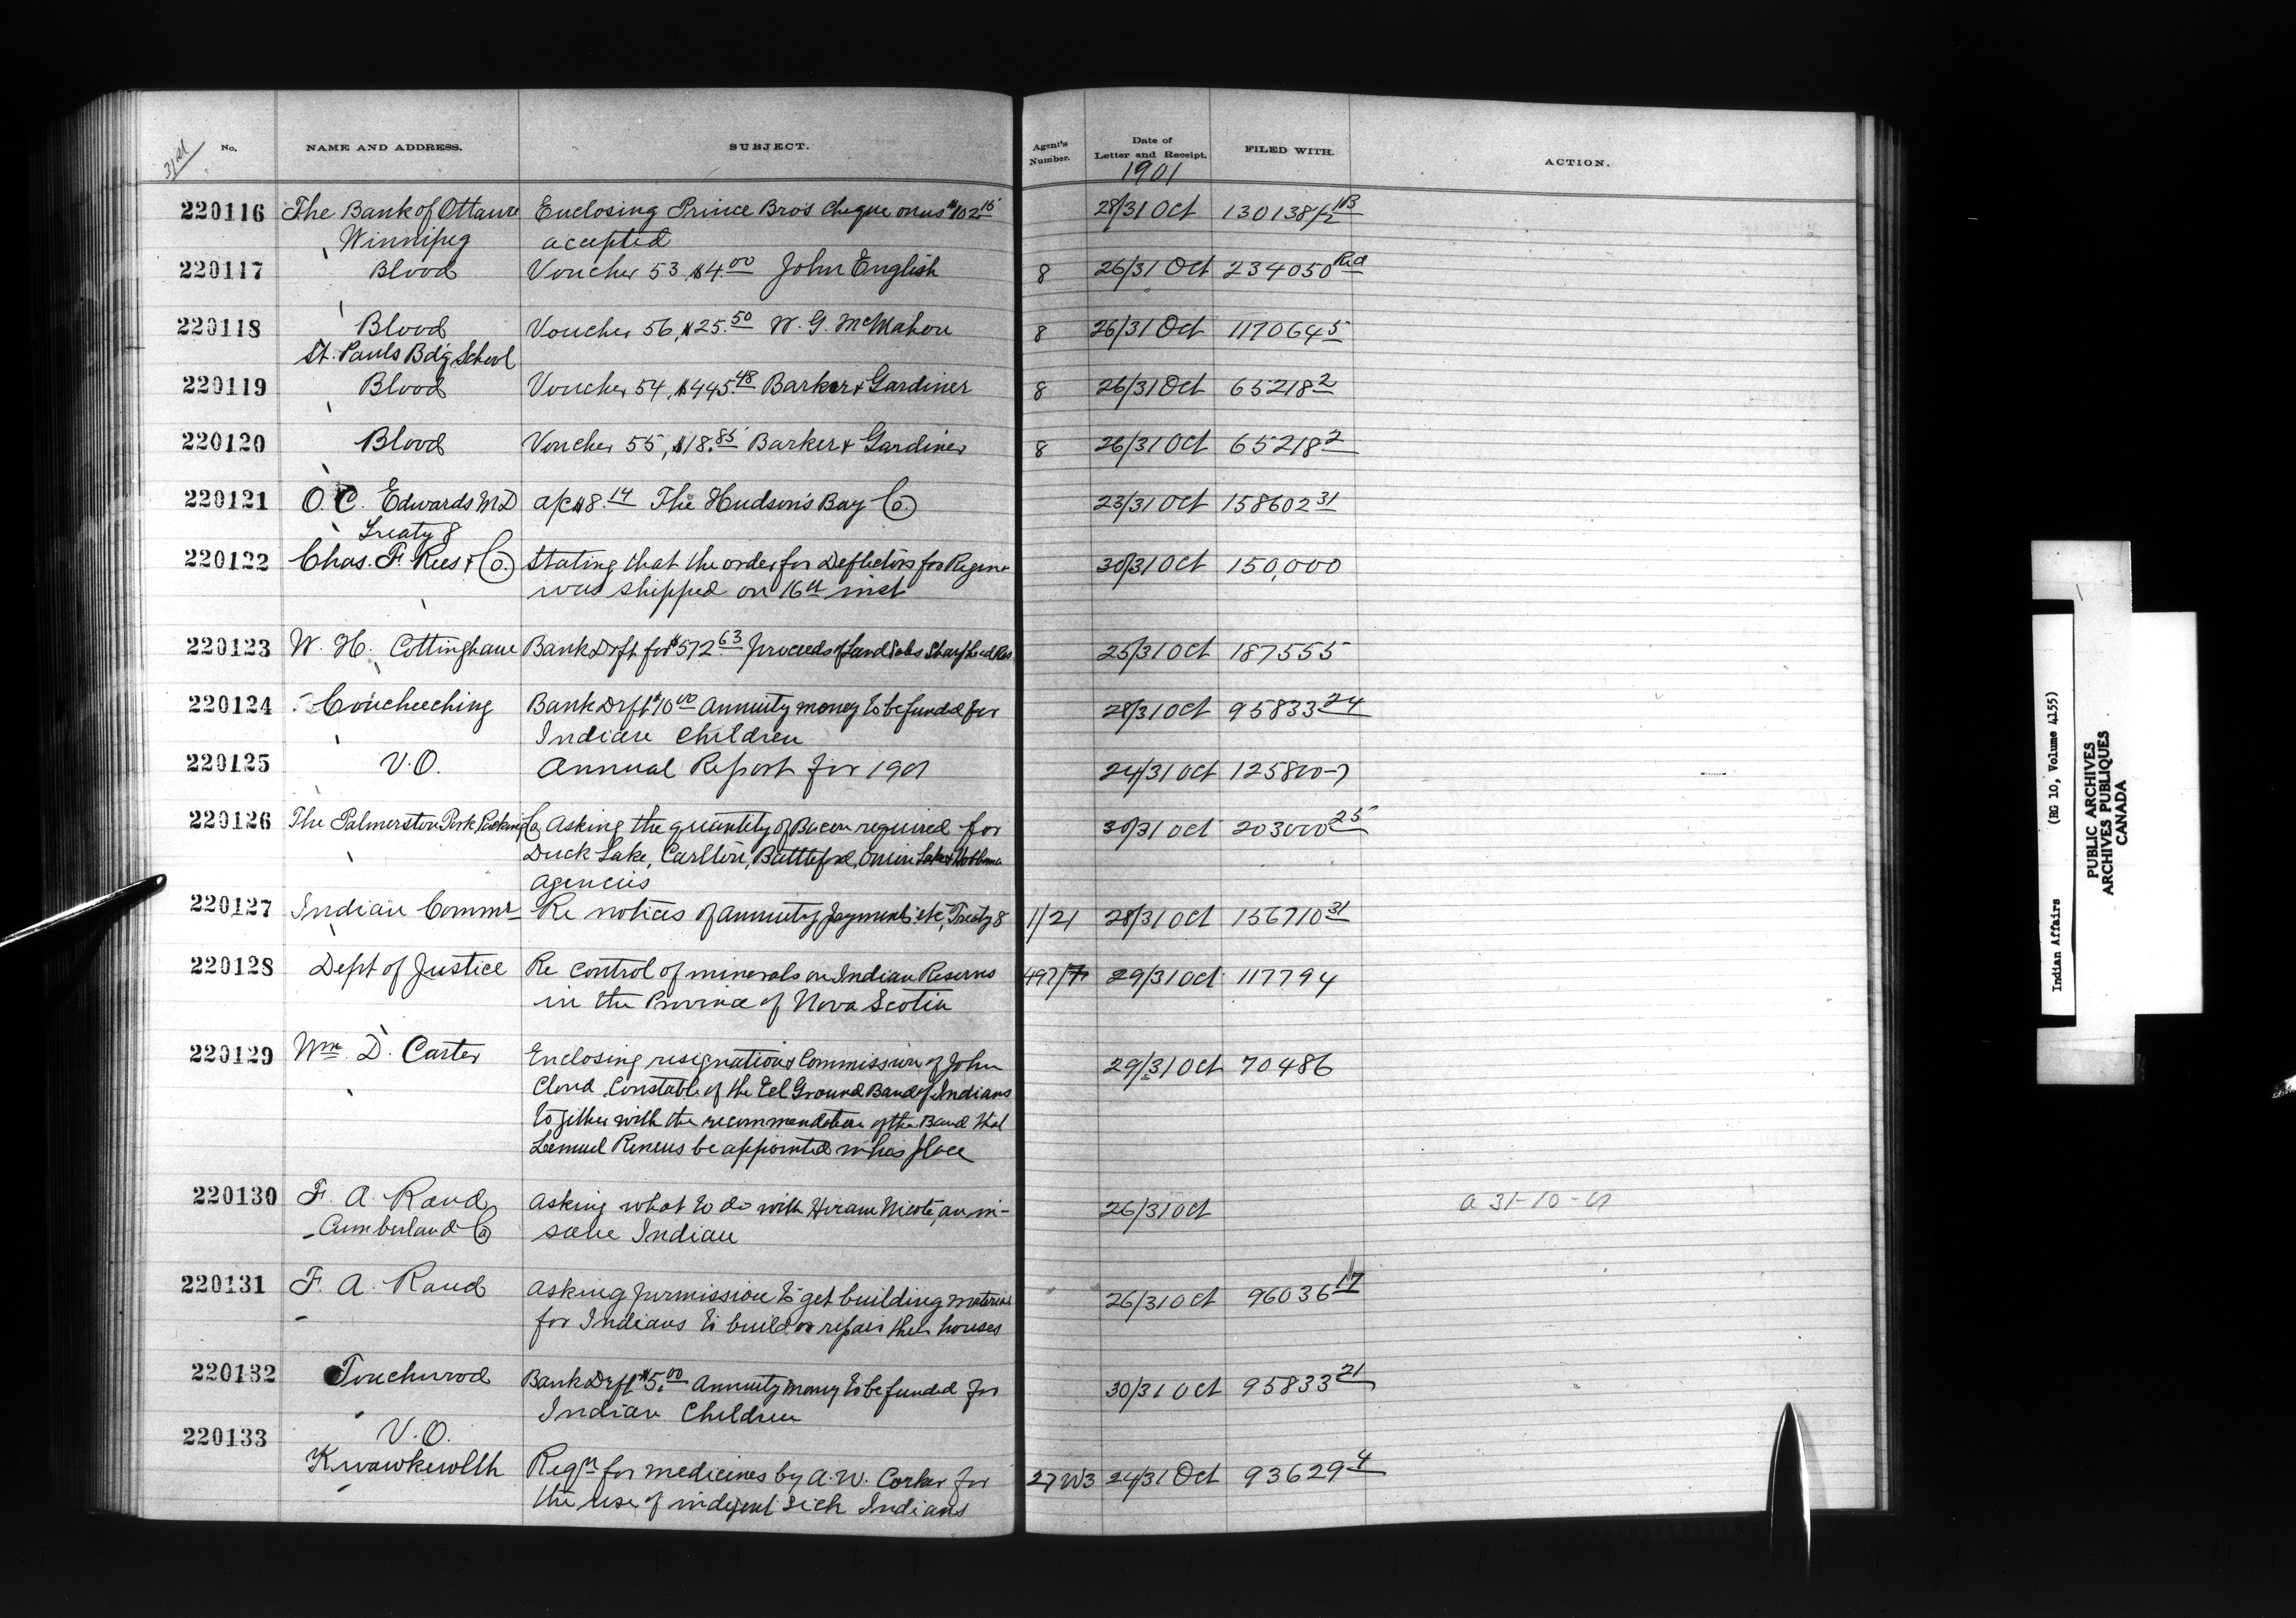 31st No. NAME AND ADDRESS. SUBJECT. Agent's Number. Date of Letter and Receipt. FILED WITH. ACTION.
1901
220116 The Bank of Ottawa Enclosing Prince Bros cheque on us $102.15 28/31 Oct 130138/2 113
Winnipeg accepted
220117 Blood Voucher 53, $4.00 John English 8 26/31 Oct 234050 Red
220118 Blood Voucher 56, $25.50 W. G. McMahon 8 26/31 Oct 117064 5
St. Pauls Bdg School
220119 Blood Voucher 54, $445.48 Barker & Gardiner 8 26/31 Oct 65218 2
220120 Blood Voucher 55, $18.85 Barker & Gardiner 8 26/31 Oct 65218 2
220121 O. C. Edwards MD a/c $8.14 The Hudson's Bay Co. 23/31 Oct 158602 31
Treaty 8
220122 Chas. F. Rees & Co. Stating that the order for Deflectors for Regina 30/31 Oct 150,000
was shipped on 16th inst
220123 W. H. Cottingham Bank Drft for $572.63 proceeds of Land Sales Sharphead Res 25/31 Oct 187555
220124 Coucheeching Bank Drft $10.00 Annuity money to be funded for 28/31 Oct 95833 24
Indian Children
220125 V.O. Annual Report for 1901 24/31 Oct 125800-7
220126 The Palmerston Pork Packing Co Asking the quantity of Bacon required for 30/31 Oct 203000 25
Duck Lake, Carlton, Battleford, Onion Lake & Hobbma
agencies
220127 Indian Commr Re notices of annuity payments etc, Treaty 8 1/21 28/31 Oct 156710 31
220128 Dept of Justice Re control of minerals on Indian Reserves 497/ 29/31 Oct 117794
in the Province of Nova Scotia
220129 Wm. D. Carter Enclosing resignation & Commission of John 29/31 Oct 70486
Cloud Constable of the Eel Ground Band of Indians
together with the recommendation of the Band that
Lemuel Renous be appointed in his place
220130 F. A. Rand Asking what to do with Hiram Nicote, an in- 26/31 Oct a 31-10-01
Cumberland Co sane Indian
220131 F. A. Rand Asking permission to get building material 26/31 Oct 96036 17
for Indians to build or repair their houses
220132 Touchwood Bank Drft $5.00 Annuity money to be funded for 30/31 Oct 95833 21
Indian Children
220133 V.O.
Kwawkewlth Reqn for medicines by A. W. Corker for 27W3 24/31 Oct 93629 4
the use of indigent sick Indians
Indian Affairs (RG 10, Volume 4155)
PUBLIC ARCHIVES
ARCHIVES PUBLIQUES
CANADA